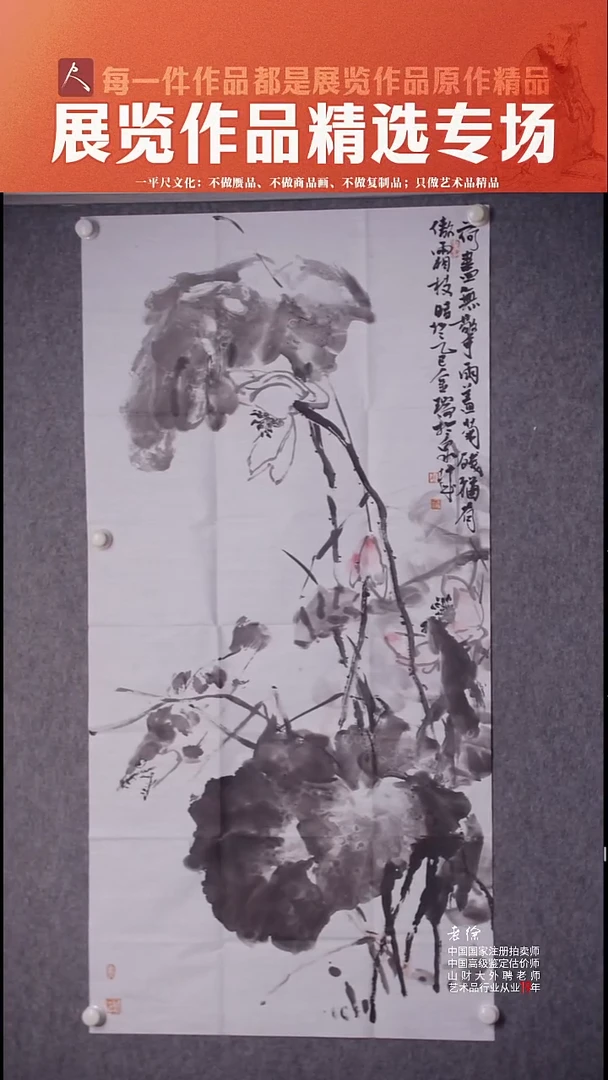 人
每一件作品都是展览作品原作精品
展览作品精选专场
一平尺文化：不做赝品、不做商品画、不做复制品；只做艺术品精品
荷盡無擎雨蓋菊殘猶有
傲霜枝
老徐
中国国家注册拍卖师
中国高级鉴定估价师
山财大外聘老师
艺术品行业从业
年